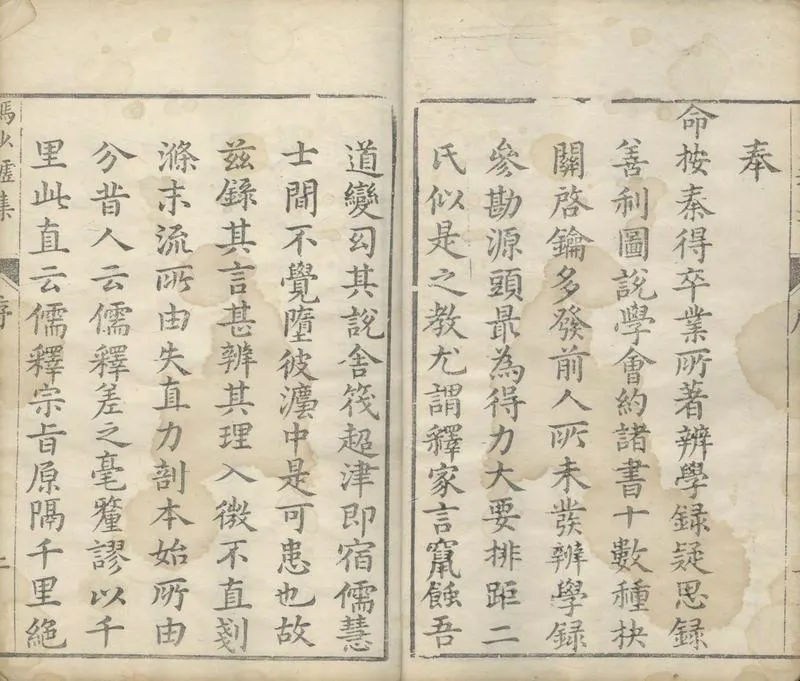 奉
命按秦得卒業所著辨學録疑思録
善利圖說學會約諸書十數種抉
關啓鑰多發前人所未發辨學録
參勘源頭最為得力大要排距二
氏似是之教尤謂釋家言竄蝕吾
道變幻其說舍筏超津即宿儒慧
士間不覺墮彼瀍中是可患也故
兹録其言甚辨其理入微不直剗
滌末流所由失直力剖本始所由
分昔人云儒釋差之毫釐謬以千
里此直云儒釋宗旨原隔千里絕
馮少墟集
序
二